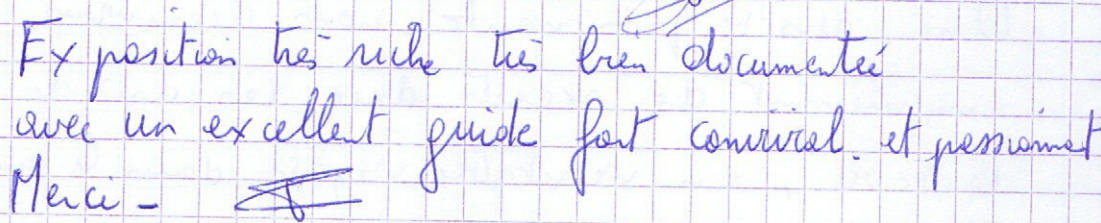 Exposition très riche très bien documentée
avec un excellent guide fort convivial. et passionnant
Merci -